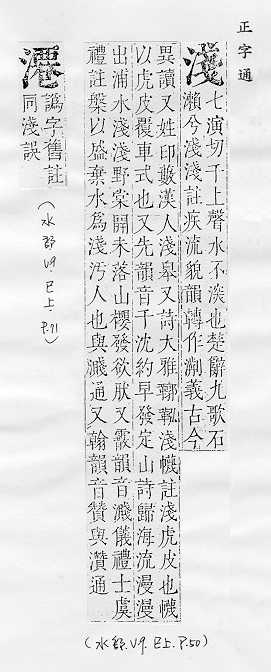 正字通
淺
七演切千上聲水不深也楚辭九歌石
瀨兮淺淺註疾流貌韻轉作濺義古今
異讀又姓印藪漢人淺皋又詩大雅鞹鞃淺幭註淺虎皮也幭
以虎皮覆車式也又先韻音千沈約早發定山詩歸海流漫漫
出浦水淺淺野棠開未落山櫻發欲然又霰韻音濺儀禮士虞
禮註槃以盛棄水為淺汚人也與濺通又翰韻音贊與灒通
譌字舊註
同淺誤
(水部.V9.巳上.P.71)
(水部.V9.巳上.P.50)